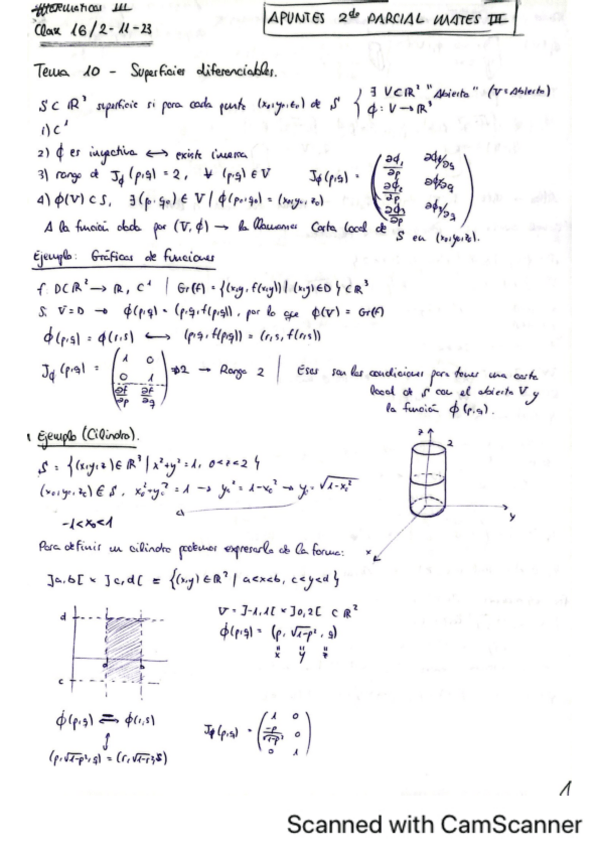 Matemáticas III
APUNTES 2do PARCIAL MATES III
Clase 16/2-11-23
Tema 10 - Superficies diferenciables.
S ⊂ ℝ³ superficie si para cada punto (x₀,y₀,z₀) de S { ∃ V⊂ℝ² "Abierto" (V=Abierto)
ϕ: V → ℝ³
1) C¹
2) ϕ es inyectiva ⟷ existe inversa
3) rango de Jϕ(p,q) = 2, ∀ (p,q) ∈ V Jϕ(p,q) = (∂ϕ₁/∂p ∂ϕ₁/∂q
∂ϕ₂/∂p ∂ϕ₂/∂q
∂ϕ₃/∂p ∂ϕ₃/∂q)
4) ϕ(V) ⊂ S, ∃(p₀,q₀) ∈ V / ϕ(p₀,q₀) = (x₀,y₀,z₀)
A la función dada por (V,ϕ) → la llamamos Carta local de S en (x₀,y₀,z₀).
Ejemplo: Gráficas de funciones
f: D⊂ℝ² → ℝ, C¹ | Gr(f) = {(x,y,f(x,y)) | (x,y)∈D} ⊂ ℝ³
Si V=D → ϕ(p,q) = (p,q,f(p,q)), por lo que ϕ(V) = Gr(f)
ϕ(p,q) = ϕ(r,s) ⟷ (p,q,f(p,q)) = (r,s,f(r,s))
Jϕ(p,q) = (1 0
0 1
∂f/∂p ∂f/∂q) → Rango 2 | Esas son las condiciones para tener una carta
local de S con el abierto V y
la función ϕ(p,q).
Ejemplo (Cilindro).
S = {(x,y,z) ∈ ℝ³ | x²+y²=1, 0<z<2}
(x₀,y₀,z₀) ∈ S, x₀²+y₀²=1 → y₀²=1-x₀² → y₀=√1-x₀²
-1<x₀<1
z
2
y
x
Para definir un cilindro podemos expresarlo de la forma:
]a,b[ × ]c,d[ = {(x,y) ∈ ℝ² | a<x<b, c<y<d}
V = ]-1,1[ × ]0,2[ ⊂ ℝ²
ϕ(p,q) = (p, √1-p², q)
x y z
d
a b
c
ϕ(p,q) = ϕ(r,s)
(p,√1-p²,q) = (r,√1-r²,s)
Jϕ(p,q) = (1 0
-p/√1-p² 0
0 1)
1
Scanned with CamScanner